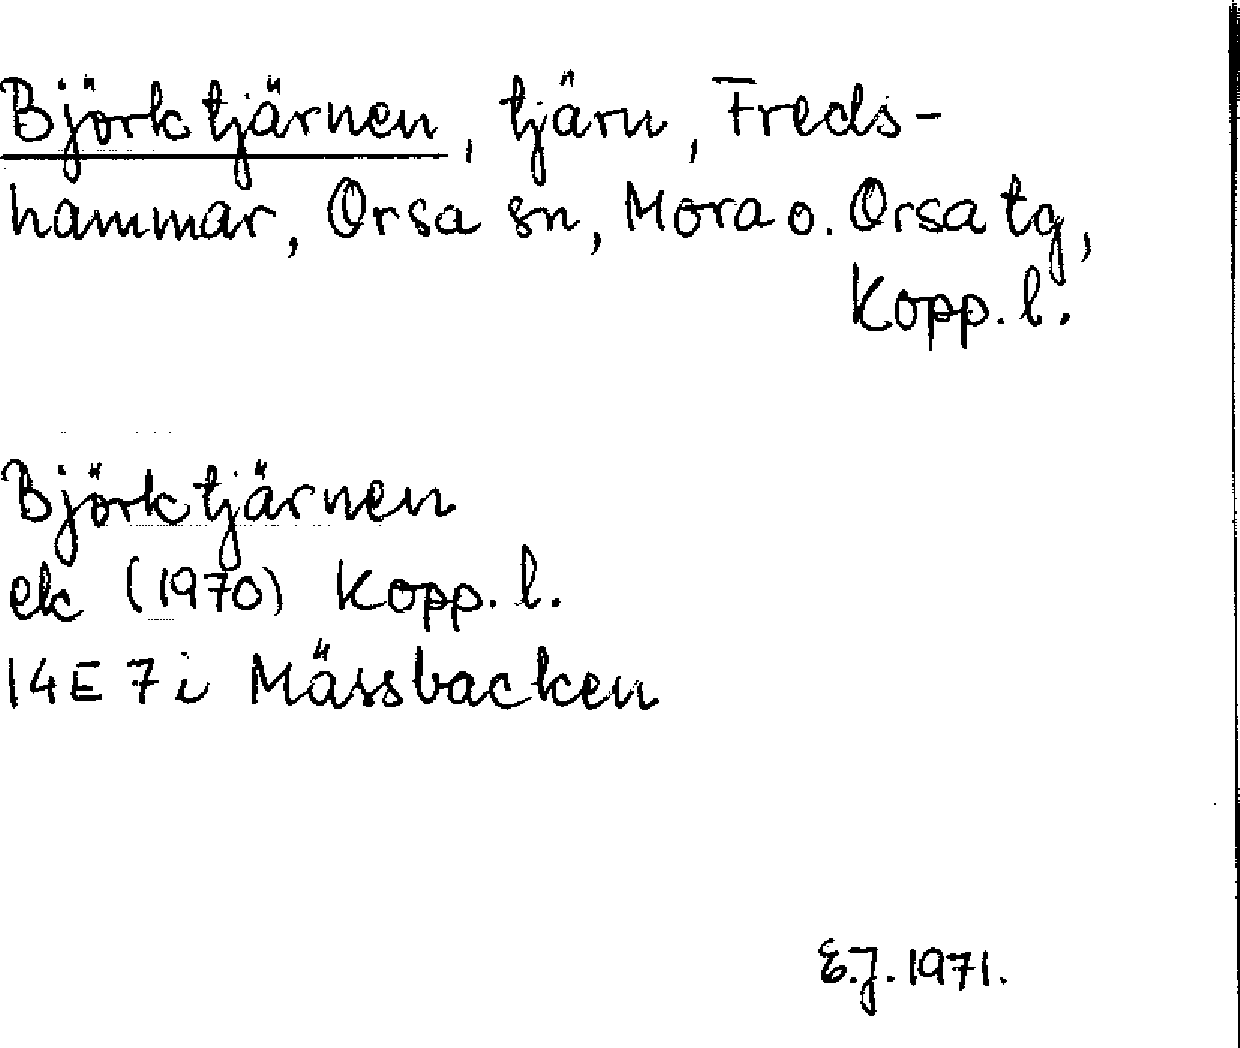 Björktjärnen, tjärn, Freds-
hammar, Orsa sn, Mora o. Orsa tg,
Kopp. l.
Björktjärnen
ek (1970) Kopp. l.
14E 7i Mässbacken
E.J. 1971.